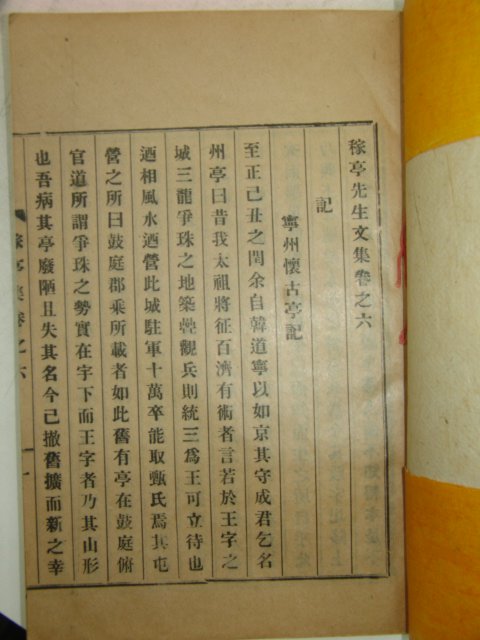 稼亭先生文集卷之六
記
寧州懷古亭記
至正己丑之閏余自韓道寧以如京其守成君乞名
州亭曰昔我太祖將征百濟有術者言若於王字之
城三龍爭珠之地築壘觀兵則統三爲王可立待也
迺相風水迺營此城駐軍十萬卒能取甄氏焉其屯
營之所曰鼓庭郡乘所載者如此舊有亭在鼓庭俯
官道所謂爭珠之勢實在宇下而王字者乃其山形
也吾病其亭廢陋且失其名今已撤舊擴而新之幸
稼亭集卷之六
一